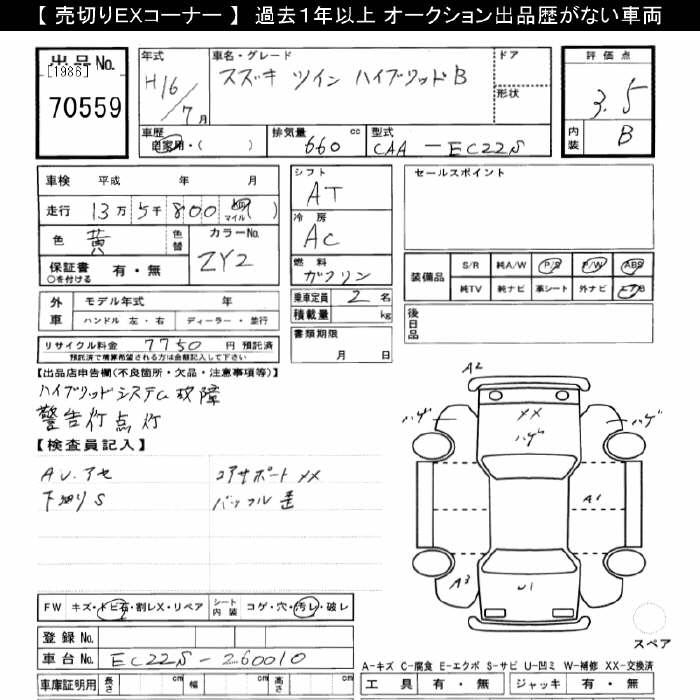 【 売切りEXコーナー 】 過去1年以上 オークション出品歴がない車両
出品No.
［1986］
70559
年式
H16/7月
車名・グレード
スズキ ツイン ハイブリッドB
ドア
形状
評価点
3.5
内装
B
車歴
自家用・( )
排気量
660 cc
型式
CAA-EC22S
車検 平成 年 月
走行 13万5千800 ㎞ マイル ( )
色 黄 色替
カラーNo.
ZY2
保証書 有・無
○を付ける
外車 モデル年式 年
ハンドル 左・右 ディーラー・並行
リサイクル料金 7750円 預託済
預託済で精算希望される方は金額記入して下さい
シフト
AT
冷房
AC
燃料
ガソリン
乗車定員 2名
積載量 kg
書類期限
月 日
セールスポイント
装備品
S/R 純A/W P/S P/W ABS
純TV 純ナビ 革シート 外ナビ
後日品
【出品店申告欄(不良箇所・欠品・注意事項等)】
ハイブリッドシステム故障
警告灯点灯
【検査員記入】
AU.アセ
下廻りS
コアサポートXX
A2
ハゲ
XX
ハゲ
ハゲ
A1
A3
U1
FW キズ・トビ石・割レX・リペア
シート内装 コゲ・穴・汚レ・破レ
登録No.
車台No. EC22S-260010
車庫証明用 長さ cm 幅 cm 高さ cm
スペア
A-キズ C-腐食 E-エクボ S-サビ U-凹ミ W-補修 XX-交換済
工具 有・無 ジャッキ 有・無